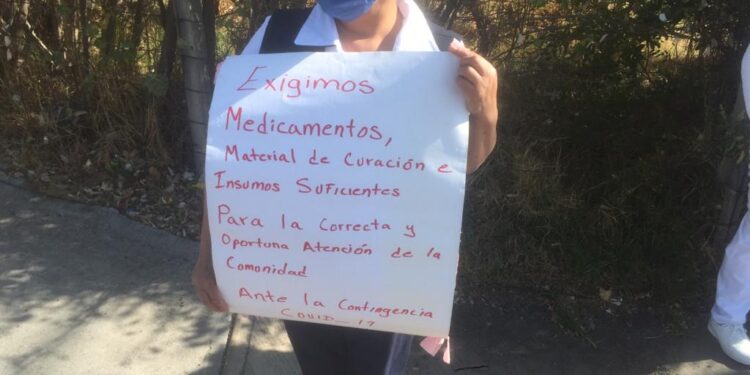 Exigimos
Medicamentos,
Material de Curación e
Insumos Suficientes
Para la Correcta y
Oportuna Atención de la
Comunidad
Ante la Contingencia
COVID-19